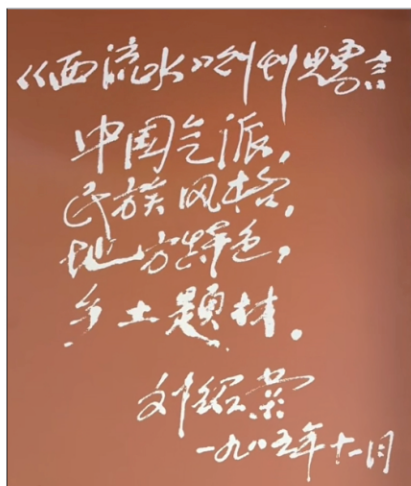 《西流水》创刊
中国气派，
民族风格，
地方特色，
乡土题材。
刘绍棠
一九八五年十一月